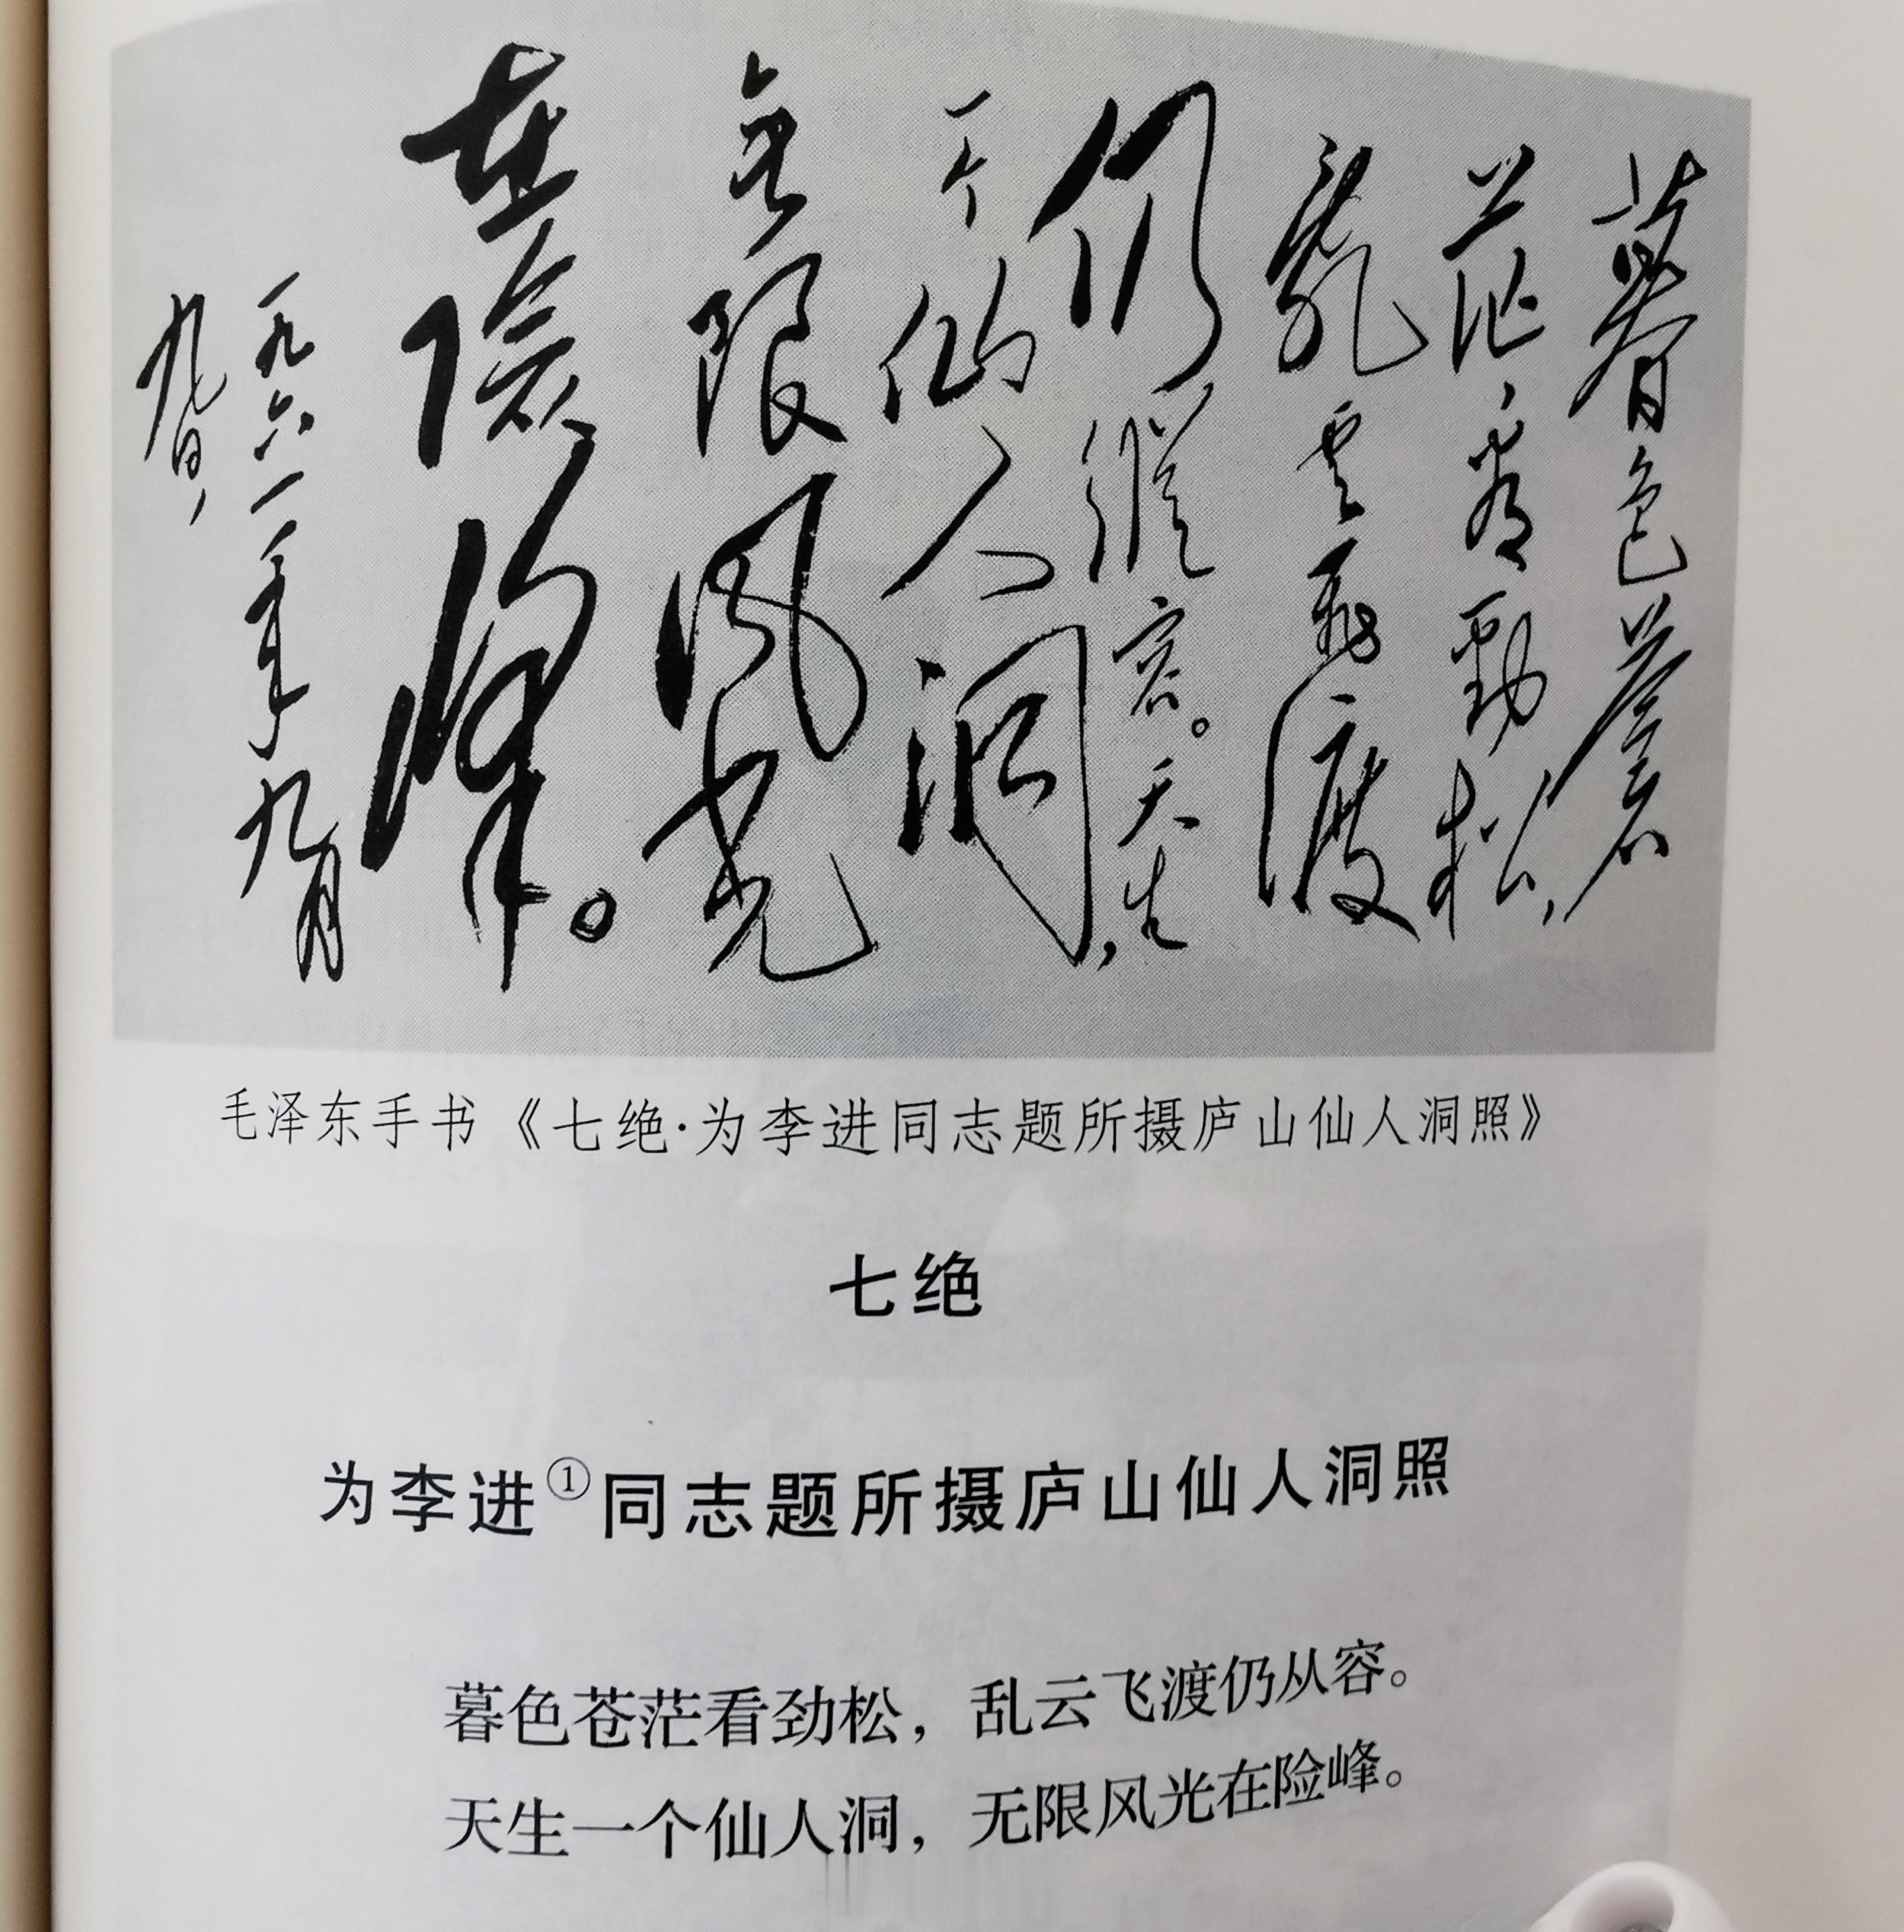 暮色蒼
茫看勁松，
亂雲飛渡
仍縱容。天生
一个仙人洞，
无限风光
在險峰。
一九六一年九月
九日，
毛泽东手书《七绝·为李进同志题所摄庐山仙人洞照》
七绝
为李进①同志题所摄庐山仙人洞照
暮色苍茫看劲松，乱云飞渡仍从容。
天生一个仙人洞，无限风光在险峰。